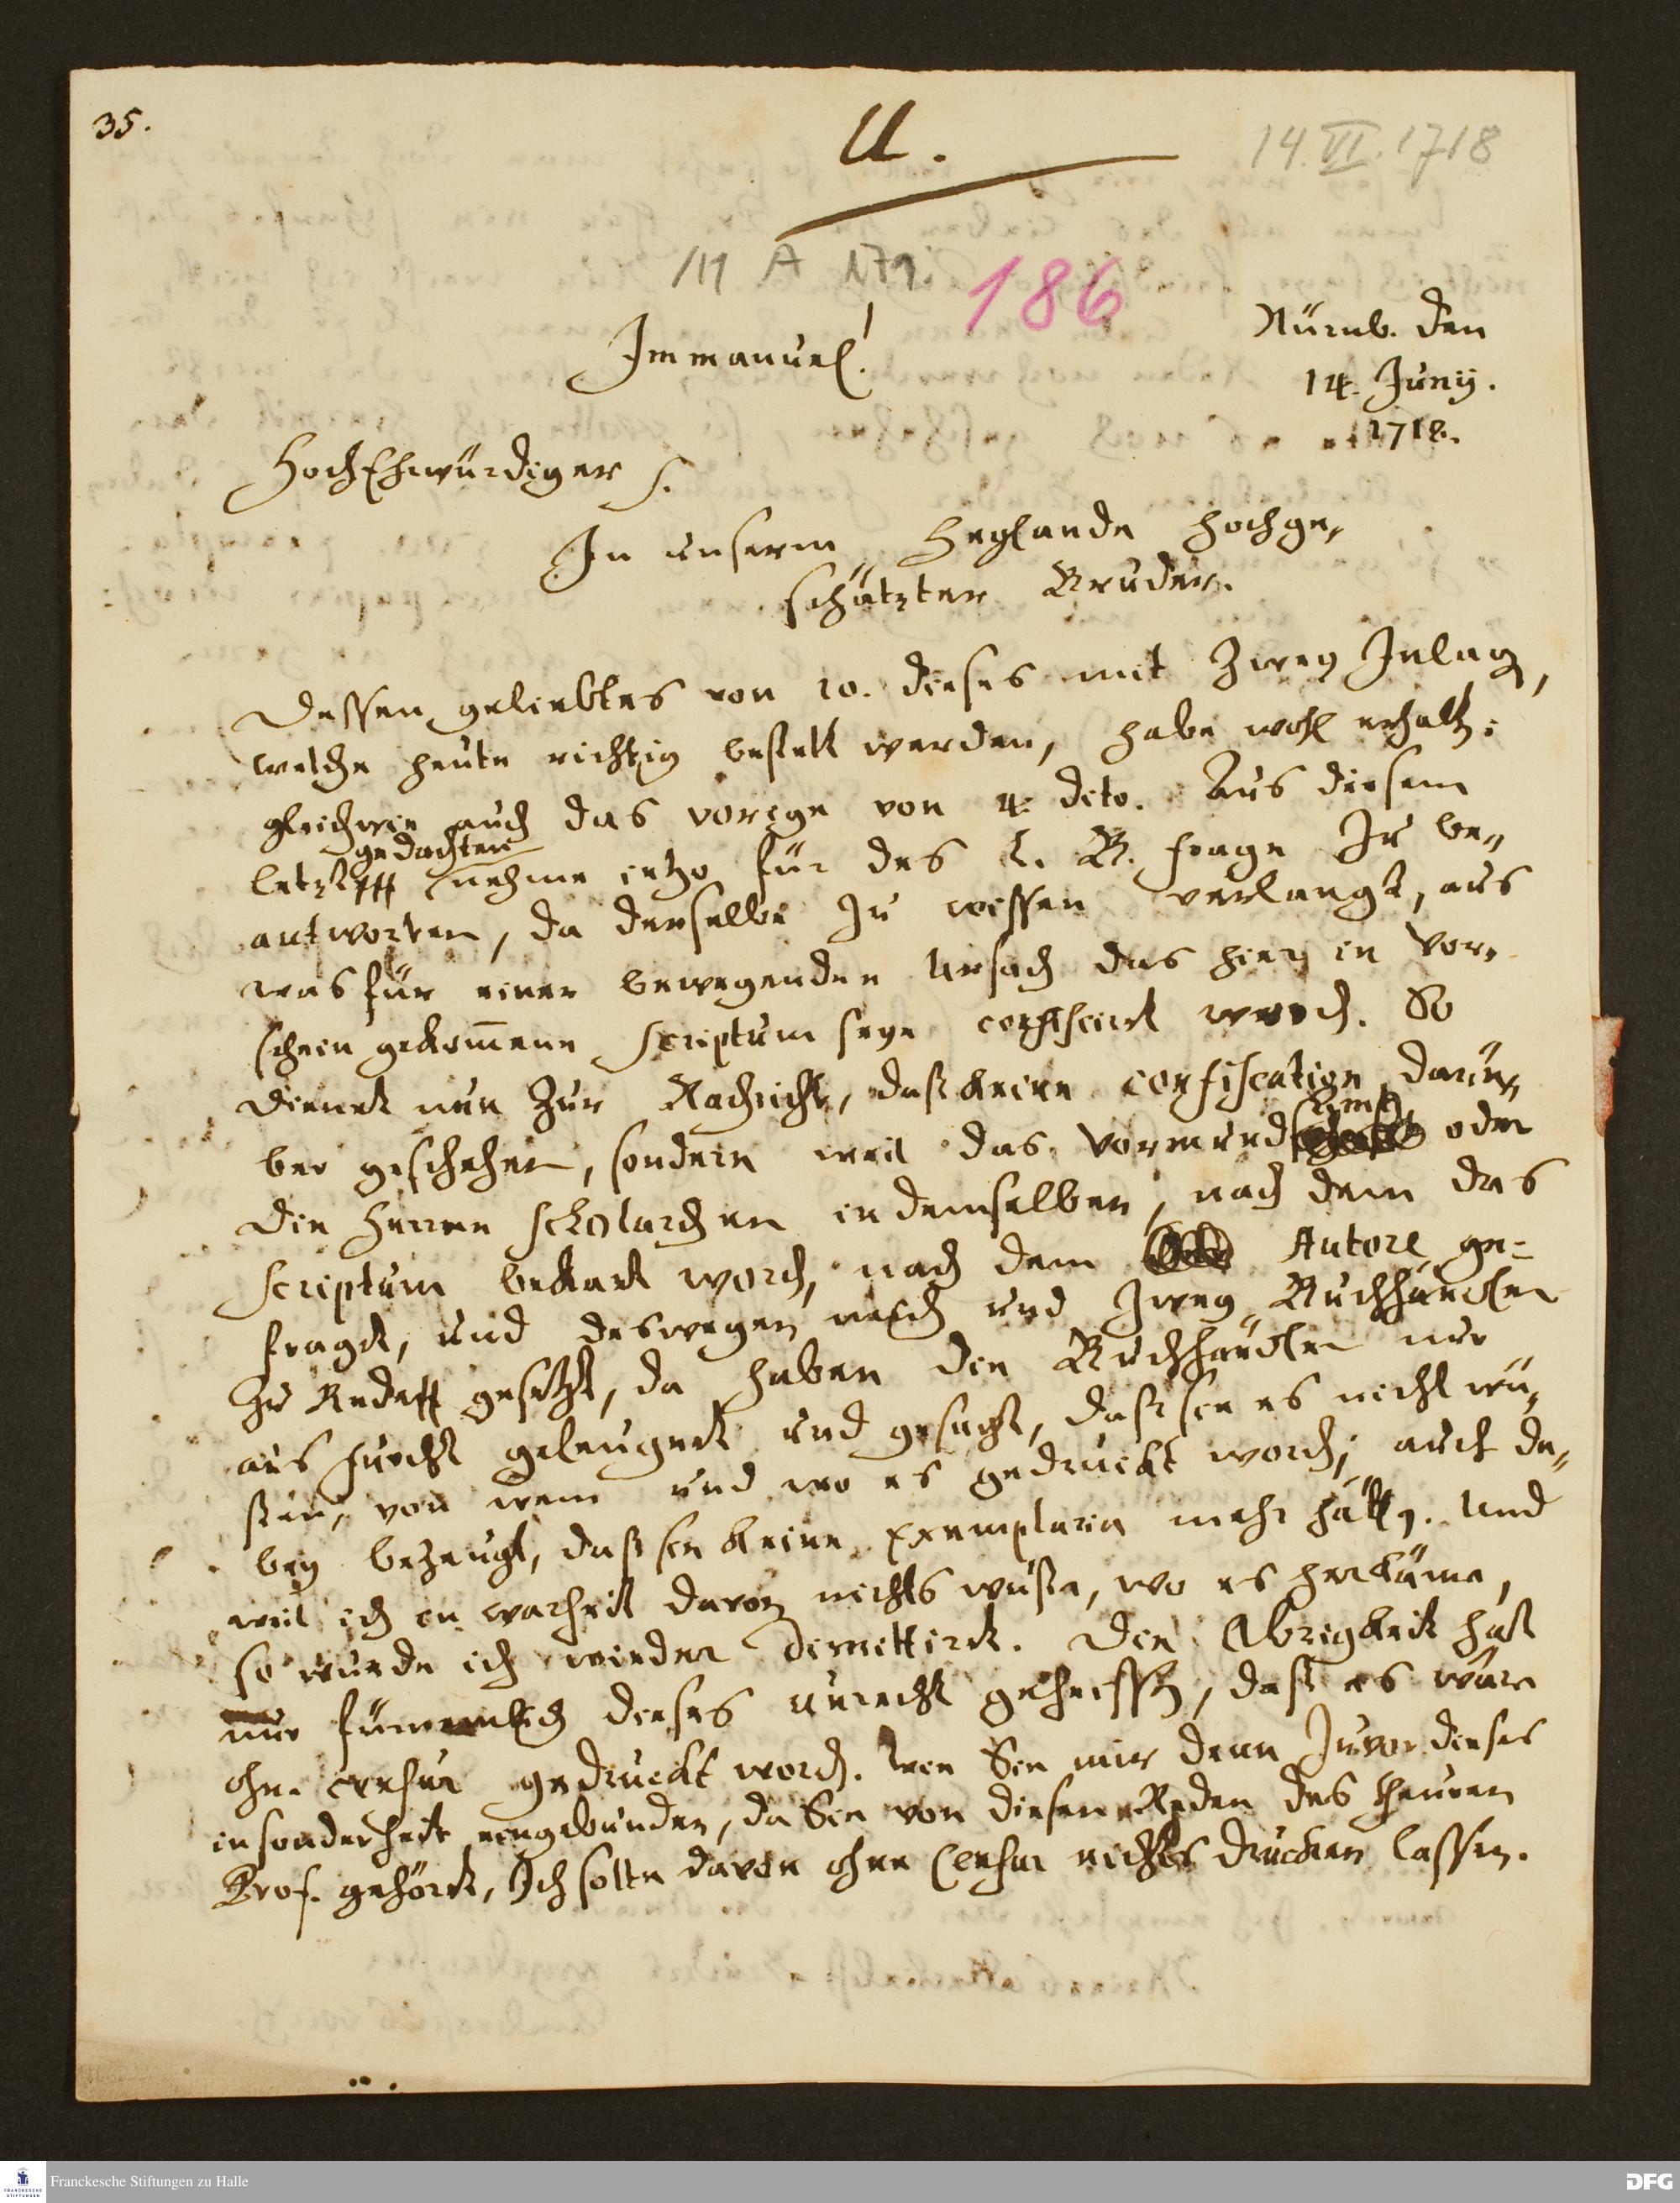 35.
U.
14.VI.1718
/11 A 179.
186
Immanuel!
Nürnb. den
14. Junij.
1718.
HochEhrwürdiger
In unserm Heylande hochge-
schätzter Bruder.
Dessen geliebtes von 10. dieses mit zwey Inlag,
welche heute richtig bestelt werden, habe wohl erhalt;
gleichwie auch das vorige von 4. dito. Aus diesem
gedachten
nehme ietzo für des l. B. frage zu be-
antworten, da derselbe zu wissen verlangt, aus
was für einer bewegenden Ursach das hier in Vor-
schein gekom̄ene Scriptum seye confiscirt word. So
dienet nun zur Nachricht, daß keine confiscation darü-
ber geschehen, sondern weil das Vormund oder
die Herren Scholarchen in demselben, nach dem das
Scriptum bekant word, nach dem Autore ge-
fragt, und deswegen mich und zwey Buchhändler
zu Rede gesetzt, da haben die Buchhändler nur
aus furcht geleugnet und gesagt, daß sie es nicht wü-
sten, von wem und wo es gedruckt word; auch da-
bey bezeugt, daß sie keine Exemplaria mehr hätt. Und
weil ich in warheit davon nichts wuste, wo es herkäme,
so wurde ich wieder dimittirt. Die Obrigkeit hat
nur fürnemlich dieses unrecht geheiss, daß es wäre
ohne censur gedruckt word. wie Sie mir denn zuvor dieses
insonderheit eingebunden, da Sie von diesen Reden des theuren
Prof. gehört, Ich solte davon ohne Censur nichts drucken lassen.
Franckesche Stiftungen zu Halle
FRANCKESCHE
STIFTUNGEN
DFG